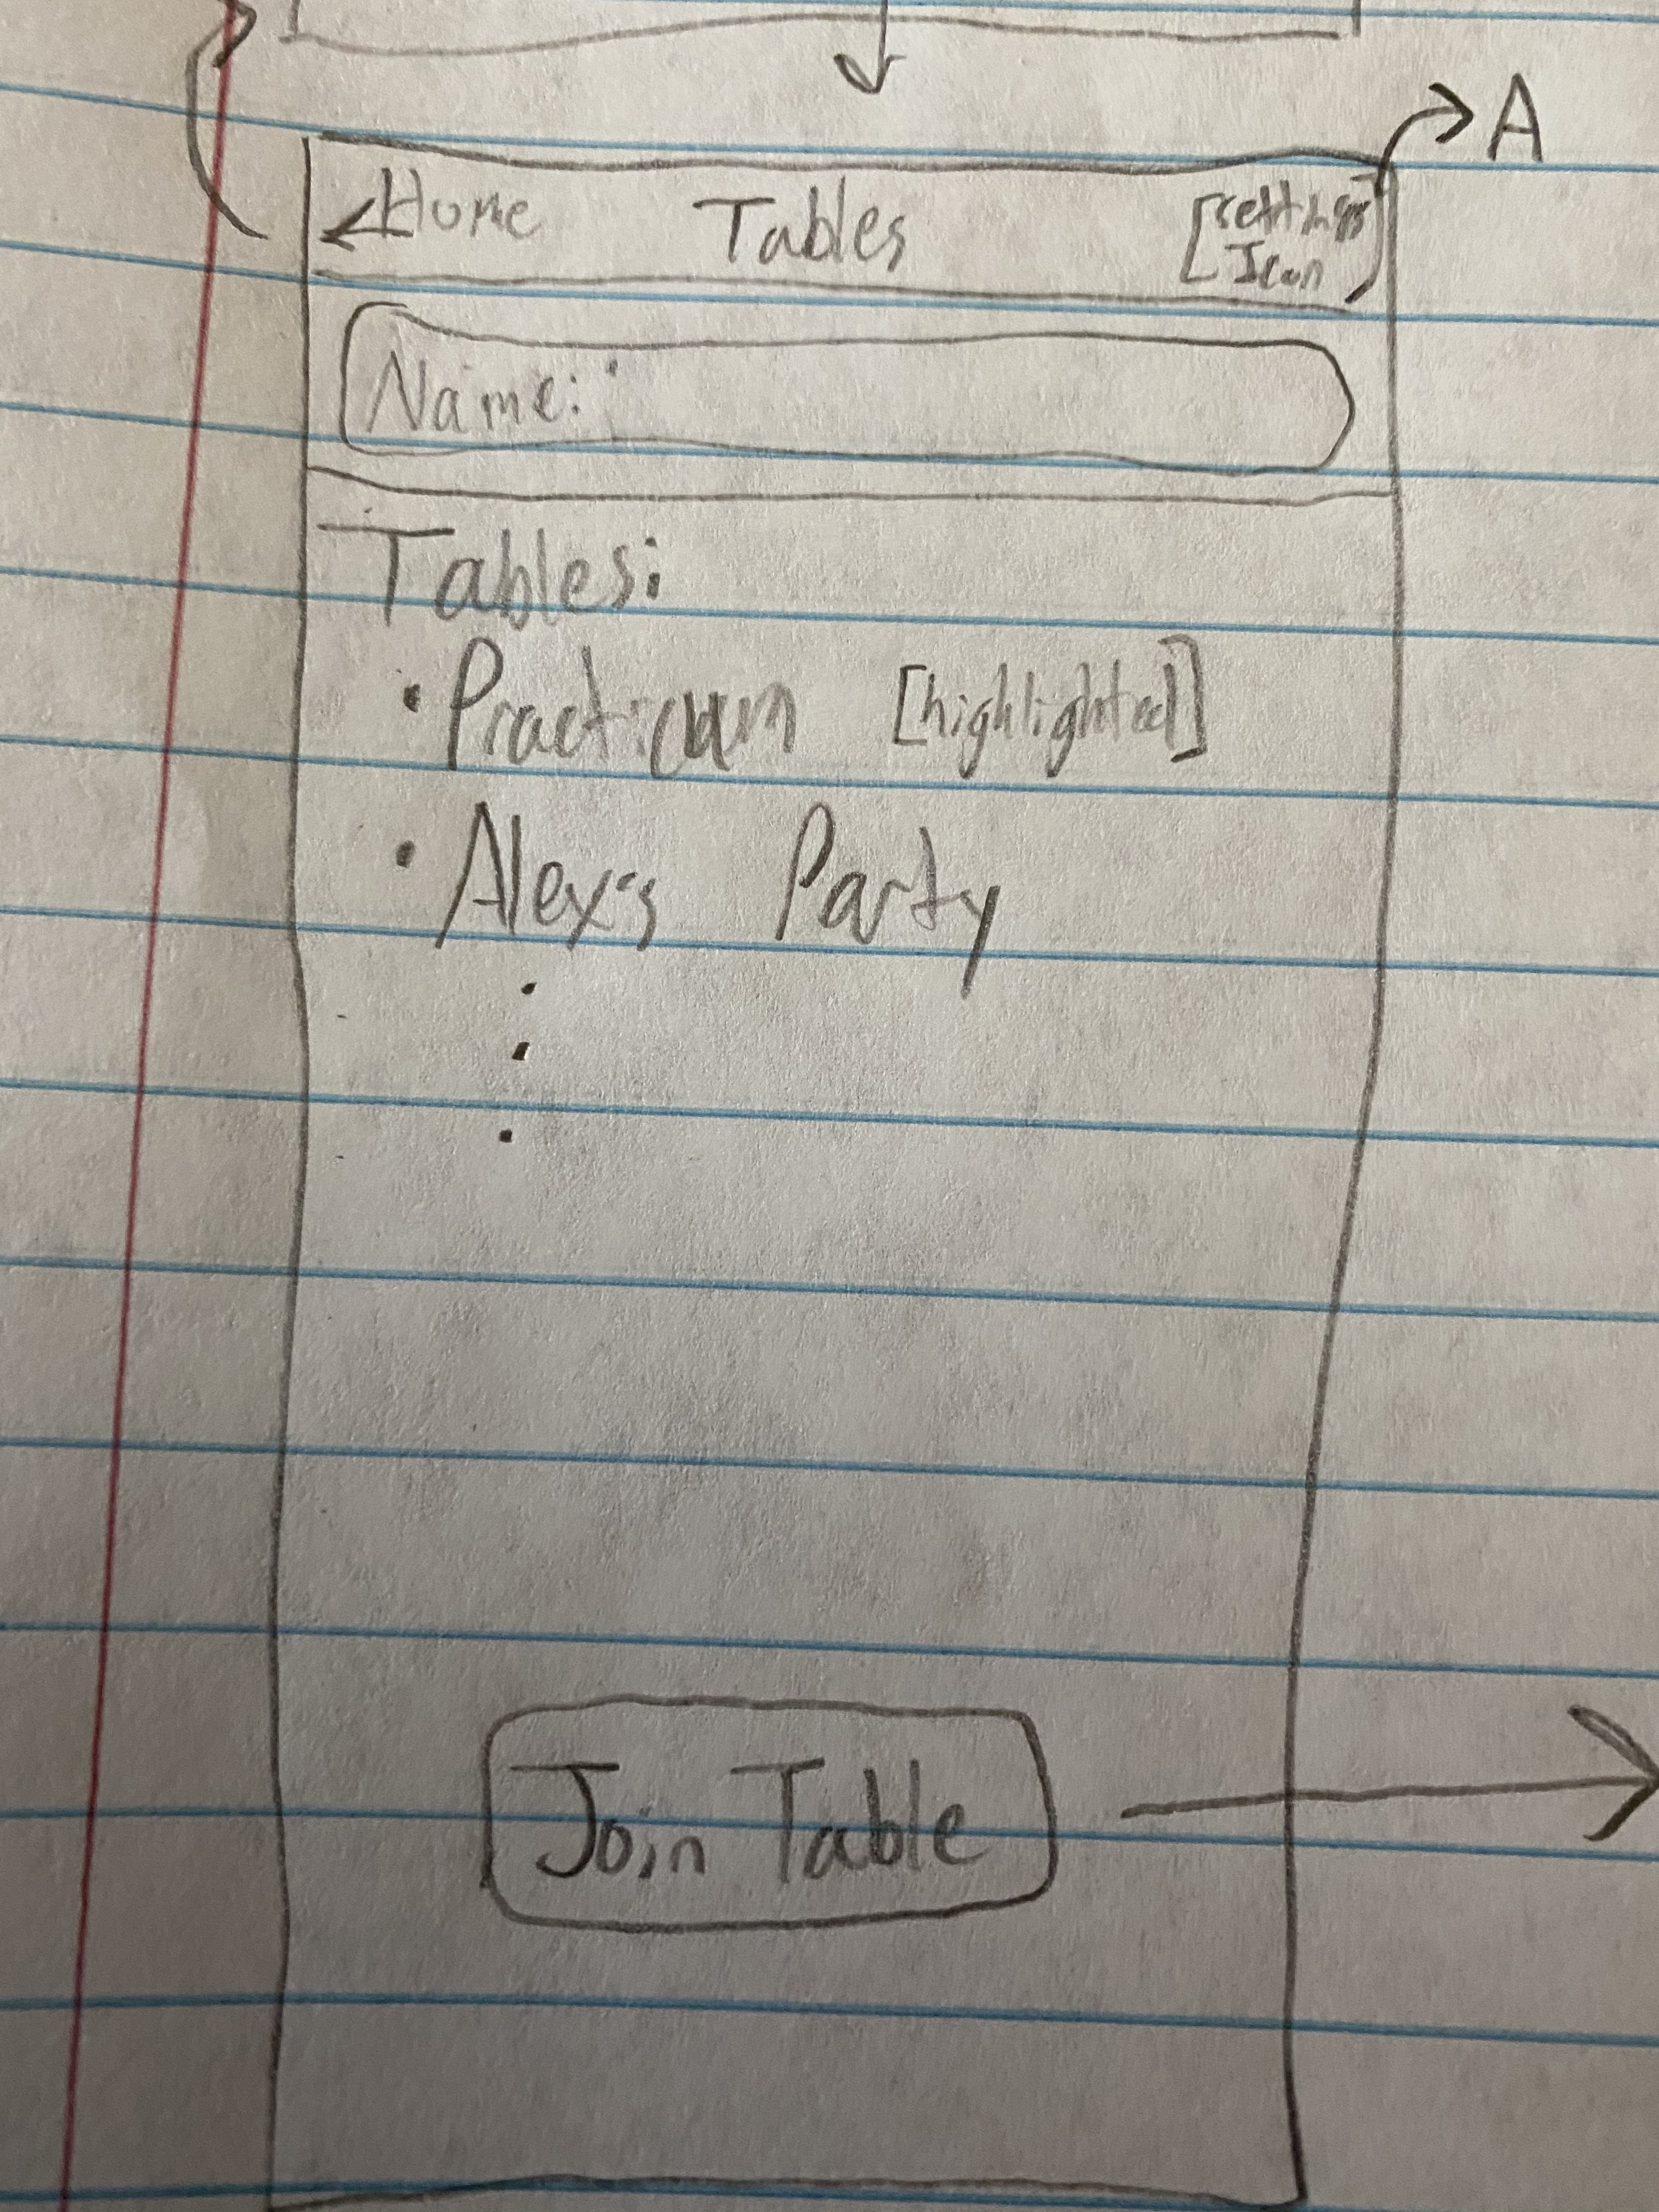 A
←Home Tables [settings
Icon]
Name:
Tables:
• Practicum [highlighted]
• Alex's Party
.
.
.
Join Table